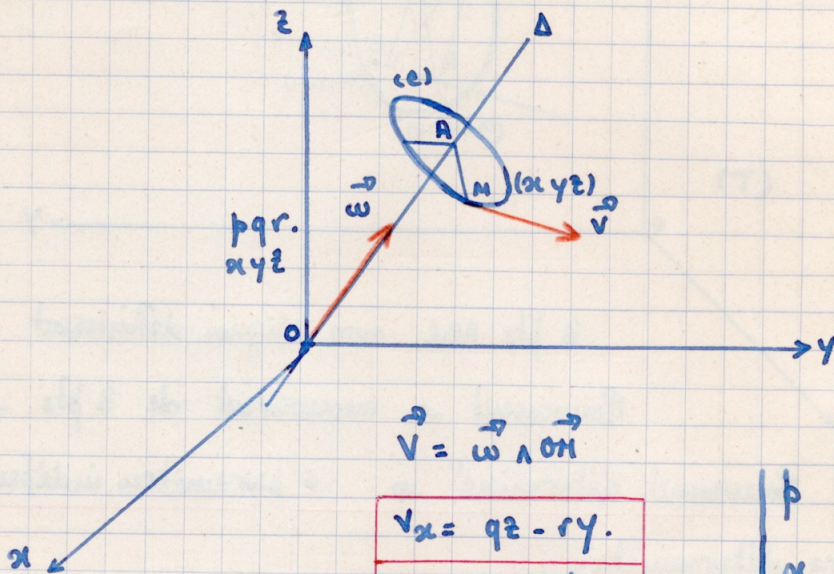 z
Δ
(e)
A
M (xyz)
ω⃗
V⃗
pqr.
xyz
O
y
V⃗ = ω⃗ ∧ OM⃗
Vx = qz - ry.
p
x
x